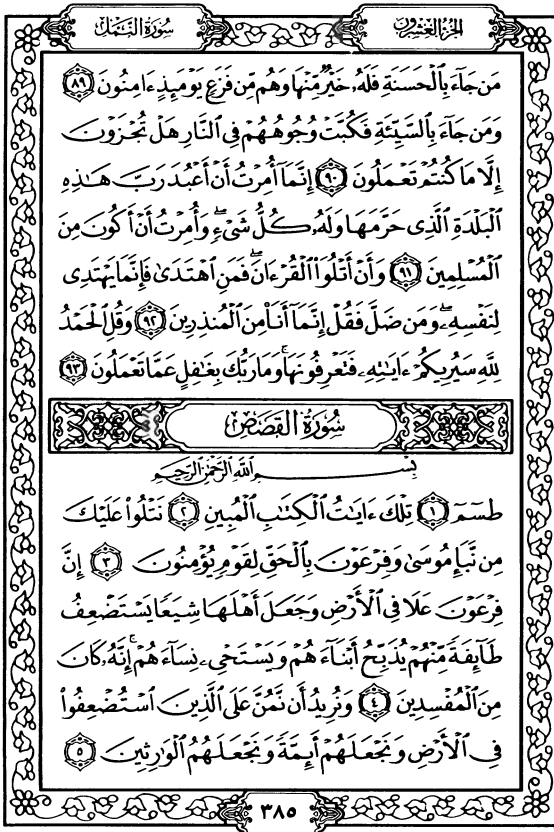 الجزء العشرون
سورة النمل
مَن جَآءَ بِٱلْحَسَنَةِ فَلَهُۥ خَيْرٌ مِّنْهَا وَهُم مِّن فَزَعٍ يَوْمَئِذٍ ءَامِنُونَ ٨٩
وَمَن جَآءَ بِٱلسَّيِّئَةِ فَكُبَّتْ وُجُوهُهُمْ فِى ٱلنَّارِ هَلْ تُجْزَوْنَ
إِلَّا مَا كُنتُمْ تَعْمَلُونَ ٩٠ إِنَّمَآ أُمِرْتُ أَنْ أَعْبُدَ رَبَّ هَٰذِهِ
ٱلْبَلْدَةِ ٱلَّذِى حَرَّمَهَا وَلَهُۥ كُلُّ شَىْءٍۖ وَأُمِرْتُ أَنْ أَكُونَ مِنَ
ٱلْمُسْلِمِينَ ٩١ وَأَنْ أَتْلُوَا۟ ٱلْقُرْءَانَۖ فَمَنِ ٱهْتَدَىٰ فَإِنَّمَا يَهْتَدِى
لِنَفْسِهِۦۖ وَمَن ضَلَّ فَقُلْ إِنَّمَآ أَنَا۠ مِنَ ٱلْمُنذِرِينَ ٩٢ وَقُلِ ٱلْحَمْدُ
لِلَّهِ سَيُرِيكُمْ ءَايَٰتِهِۦ فَتَعْرِفُونَهَاۚ وَمَا رَبُّكَ بِغَٰفِلٍ عَمَّا تَعْمَلُونَ ٩٣
سورة القصص
بسم الله الرحمن الرحيم
طسٓمٓ ١ تِلْكَ ءَايَٰتُ ٱلْكِتَٰبِ ٱلْمُبِينِ ٢ نَتْلُوا۟ عَلَيْكَ
مِن نَّبَإِ مُوسَىٰ وَفِرْعَوْنَ بِٱلْحَقِّ لِقَوْمٍ يُؤْمِنُونَ ٣ إِنَّ
فِرْعَوْنَ عَلَا فِى ٱلْأَرْضِ وَجَعَلَ أَهْلَهَا شِيَعًا يَسْتَضْعِفُ
طَآئِفَةً مِّنْهُمْ يُذَبِّحُ أَبْنَآءَهُمْ وَيَسْتَحْىِۦ نِسَآءَهُمْۚ إِنَّهُۥ كَانَ
مِنَ ٱلْمُفْسِدِينَ ٤ وَنُرِيدُ أَن نَّمُنَّ عَلَى ٱلَّذِينَ ٱسْتُضْعِفُوا۟
فِى ٱلْأَرْضِ وَنَجْعَلَهُمْ أَئِمَّةً وَنَجْعَلَهُمُ ٱلْوَٰرِثِينَ ٥
٣٨٥